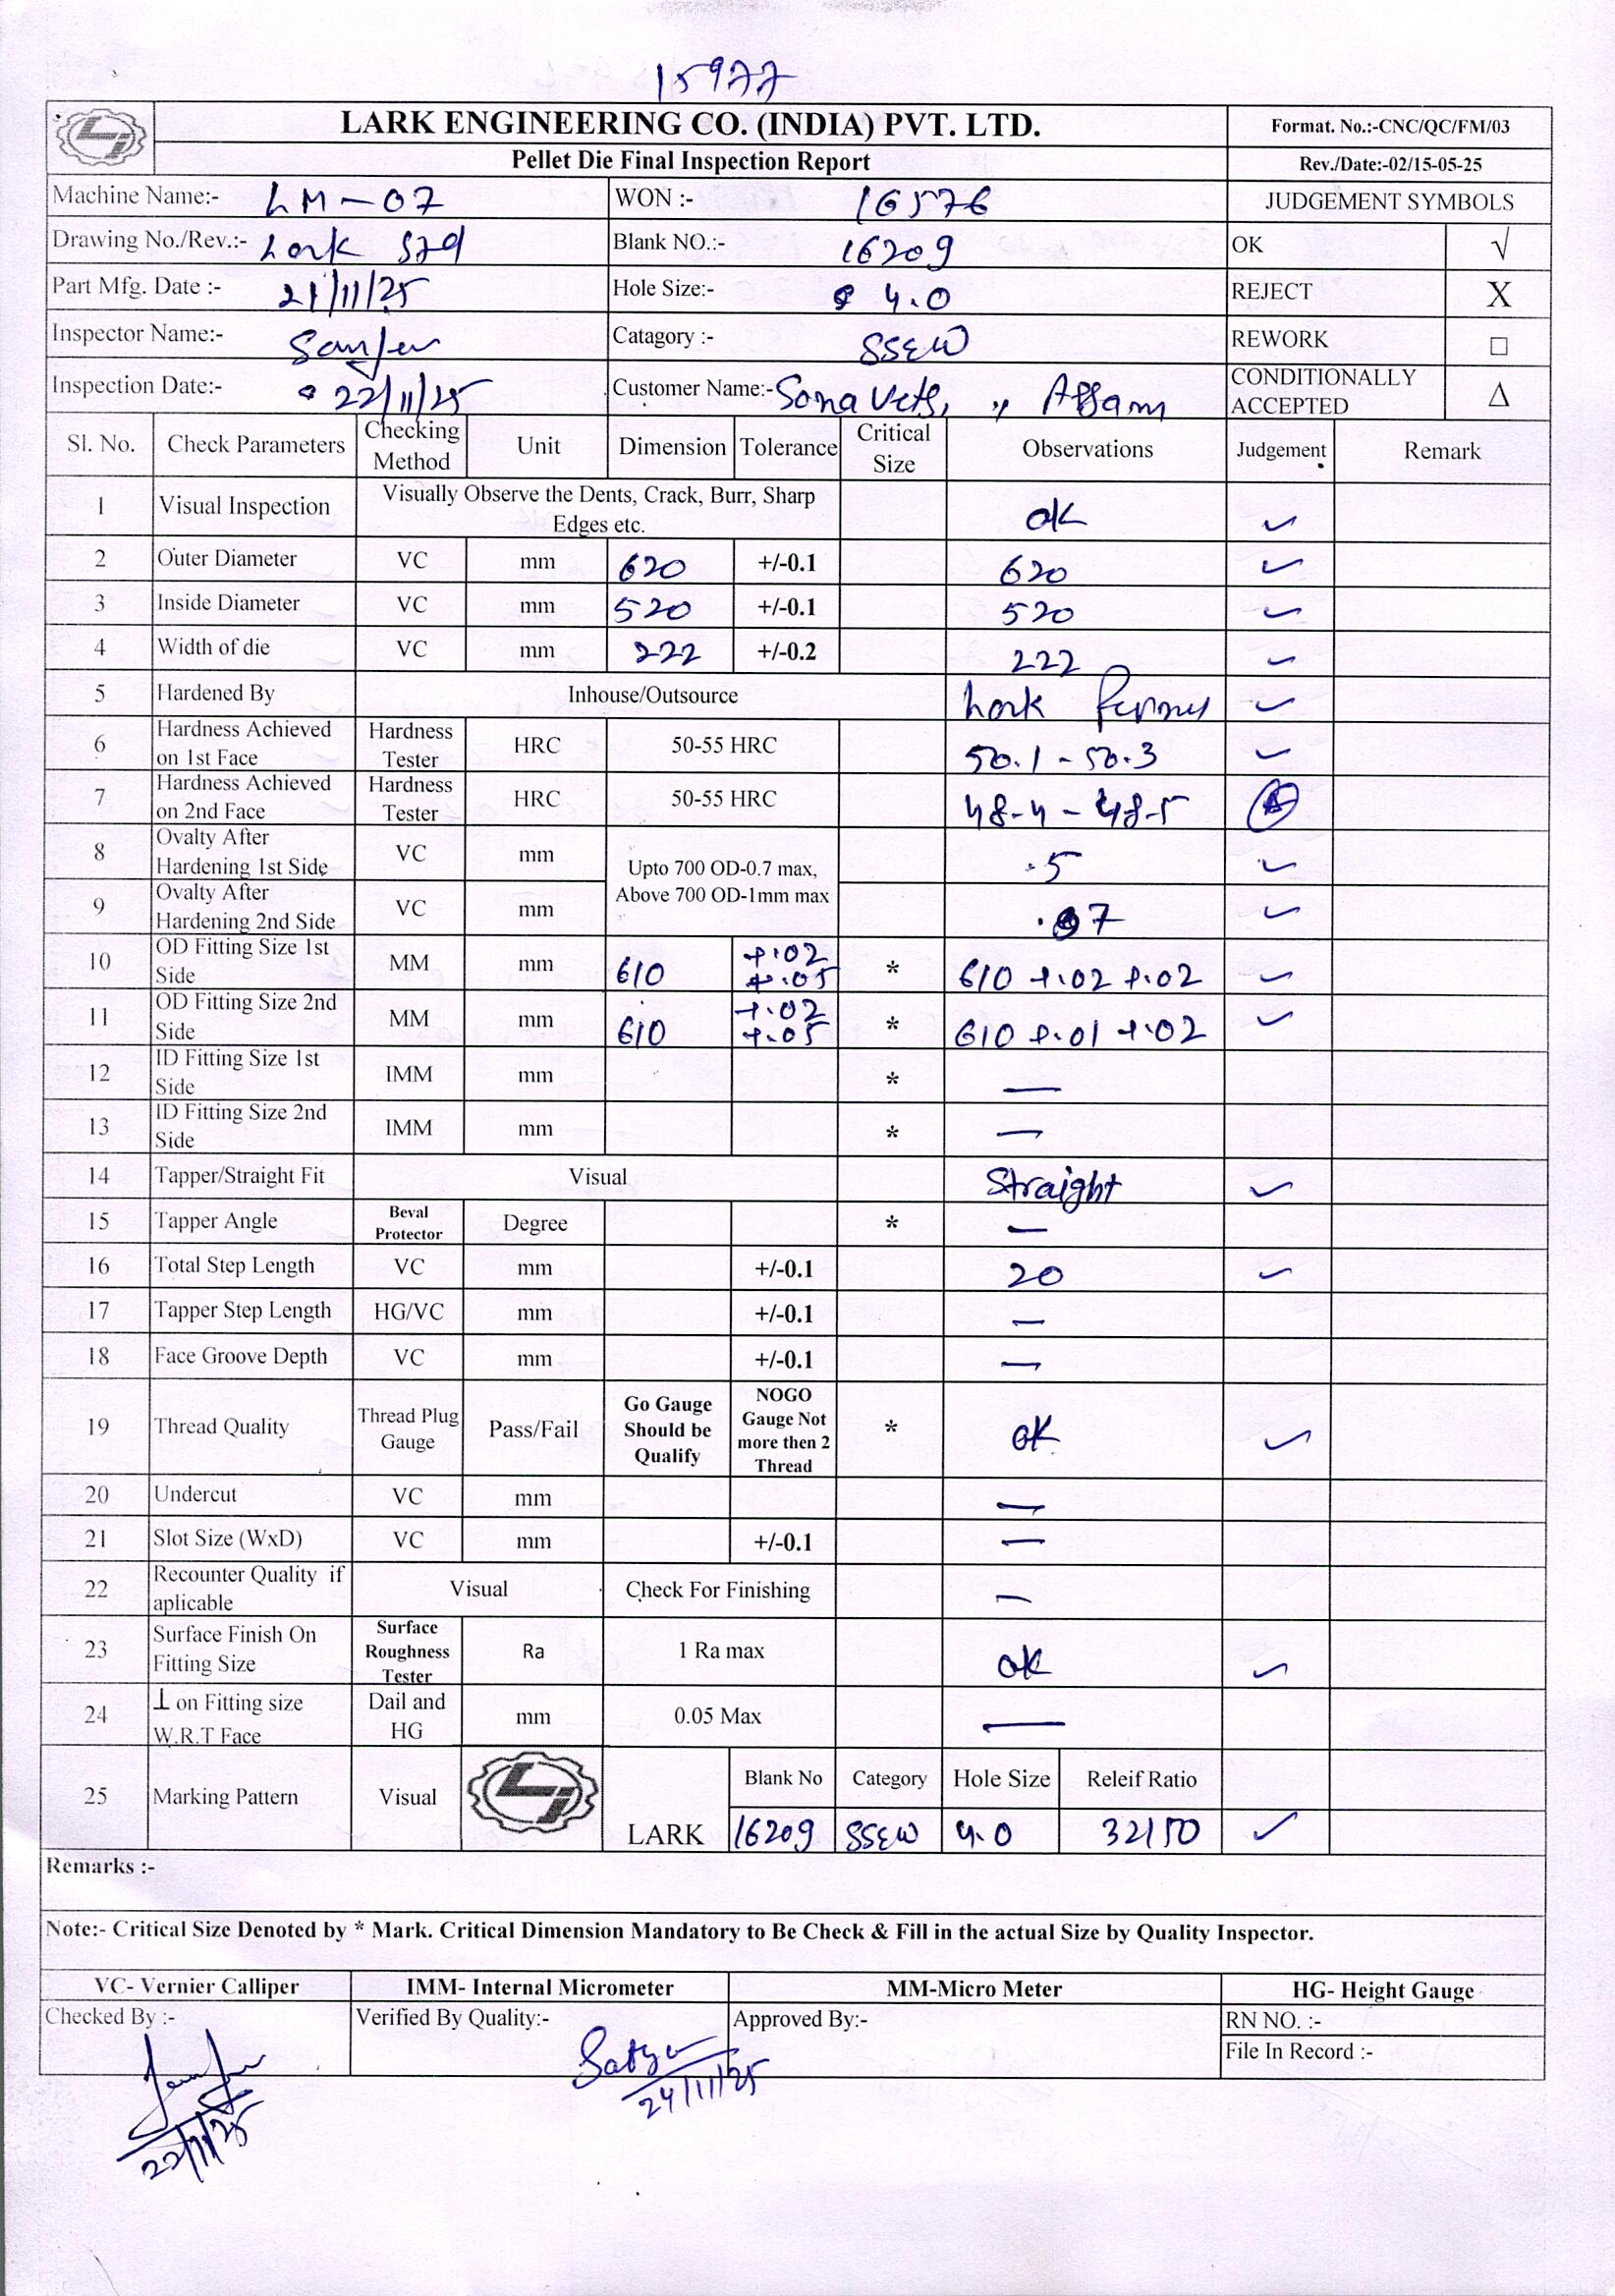 15977
LARK ENGINEERING CO. (INDIA) PVT. LTD.
Format. No.:-CNC/QC/FM/03
Pellet Die Final Inspection Report
Rev./Date:-02/15-05-25
Machine Name:- LM-07 WON :- 16576 JUDGEMENT SYMBOLS
Drawing No./Rev.:- Lark Std Blank NO.:- 16209 OK √
Part Mfg. Date :- 21/11/25 Hole Size:- 4.0 REJECT X
Inspector Name:- Catagory :- SSEW REWORK □
Inspection Date:- 22/11/25 Customer Name:- Sona Vets, ,, Assam CONDITIONALLY ACCEPTED Δ
Sl. No. Check Parameters Checking Method Unit Dimension Tolerance Critical Size Observations Judgement Remark
1 Visual Inspection Visually Observe the Dents, Crack, Burr, Sharp Edges etc. ok ✓
2 Outer Diameter VC mm 620 +/-0.1 620 ✓
3 Inside Diameter VC mm 520 +/-0.1 520 ✓
4 Width of die VC mm 222 +/-0.2 222 ✓
5 Hardened By Inhouse/Outsource Lark ✓
6 Hardness Achieved on 1st Face Hardness Tester HRC 50-55 HRC 50.1 - 50.3 ✓
7 Hardness Achieved on 2nd Face Hardness Tester HRC 50-55 HRC 48-4 - 48-5
8 Ovalty After Hardening 1st Side VC mm Upto 700 OD-0.7 max, Above 700 OD-1mm max .5 ✓
9 Ovalty After Hardening 2nd Side VC mm 7 ✓
10 OD Fitting Size 1st Side MM mm 610 +.02 +.05 * 610 +.02 +.02 ✓
11 OD Fitting Size 2nd Side MM mm 610 +.02 +.05 * 610 +.01 +.02 ✓
12 ID Fitting Size 1st Side IMM mm * —
13 ID Fitting Size 2nd Side IMM mm * —
14 Tapper/Straight Fit Visual Straight ✓
15 Tapper Angle Beval Protector Degree * —
16 Total Step Length VC mm +/-0.1 20 ✓
17 Tapper Step Length HG/VC mm +/-0.1 —
18 Face Groove Depth VC mm +/-0.1 —
19 Thread Quality Thread Plug Gauge Pass/Fail Go Gauge Should be Qualify NOGO Gauge Not more then 2 Thread * ok ✓
20 Undercut VC mm —
21 Slot Size (WxD) VC mm +/-0.1 —
22 Recounter Quality if aplicable Visual Check For Finishing —
23 Surface Finish On Fitting Size Surface Roughness Tester Ra 1 Ra max ok ✓
24 ⊥ on Fitting size W.R.T Face Dail and HG mm 0.05 Max —
25 Marking Pattern Visual LARK Blank No Category Hole Size Releif Ratio
16209 SSEW 4.0 32/50 ✓
Remarks :-
Note:- Critical Size Denoted by * Mark. Critical Dimension Mandatory to Be Check & Fill in the actual Size by Quality Inspector.
VC- Vernier Calliper IMM- Internal Micrometer MM-Micro Meter HG- Height Gauge
Checked By :- Verified By Quality:- Approved By:- RN NO. :-
File In Record :-
24/11/25
22/11/25